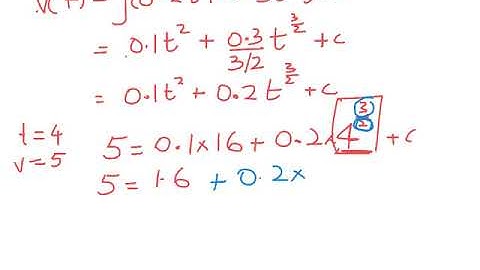 = 0.1t² + 0.3/(3/2) t^(3/2) + c
= 0.1t² + 0.2t^(3/2) + c
t=4 5 = 0.1×16 + 0.2×4^(3/2) + c
v=5 5 = 1.6 + 0.2×